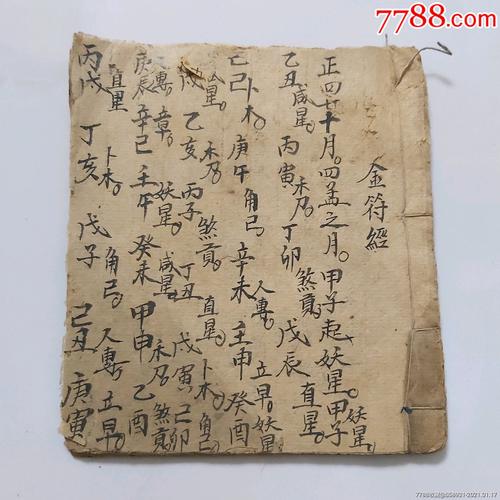 7788.com
金符經
正四七十月。四孟之月。甲子起妖星。甲子妖星。
乙丑咸星。丙寅禾乃。丁卯煞貢。戊辰直星。
己巳卜木。庚午角己。辛未人專。壬申立早。癸酉妖星。
戌咸星。乙亥禾乃。丙子煞貢。丁丑直星。戊寅卜木。己卯角己。
庚辰人專。辛巳章。壬午妖星。癸未咸星。甲申禾乃。乙酉煞貢。
丙戌直星。丁亥卜木。戊子角己。己丑人專。庚寅立早。